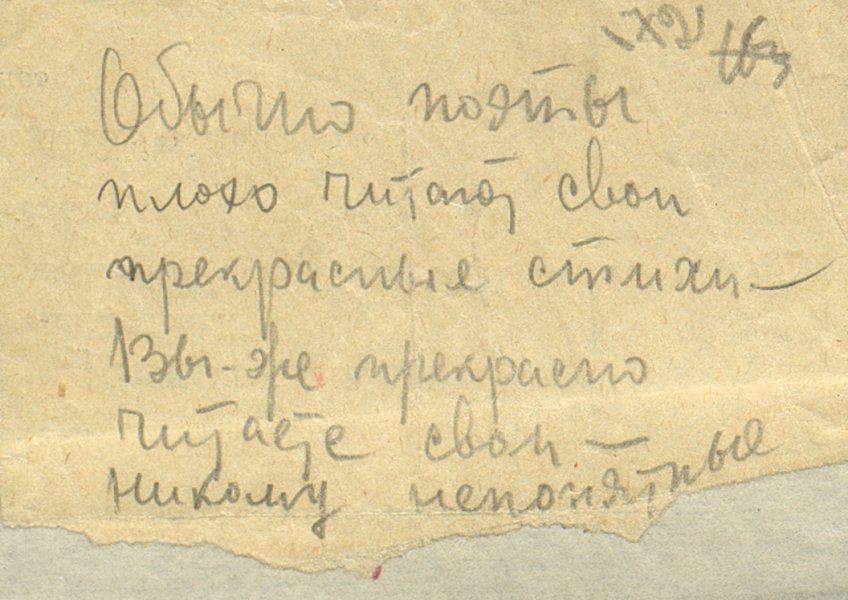 Обычно поэты
плохо читают свои
прекрасные стихи —
Вы-же прекрасно
читаете свои —
никому непонятные